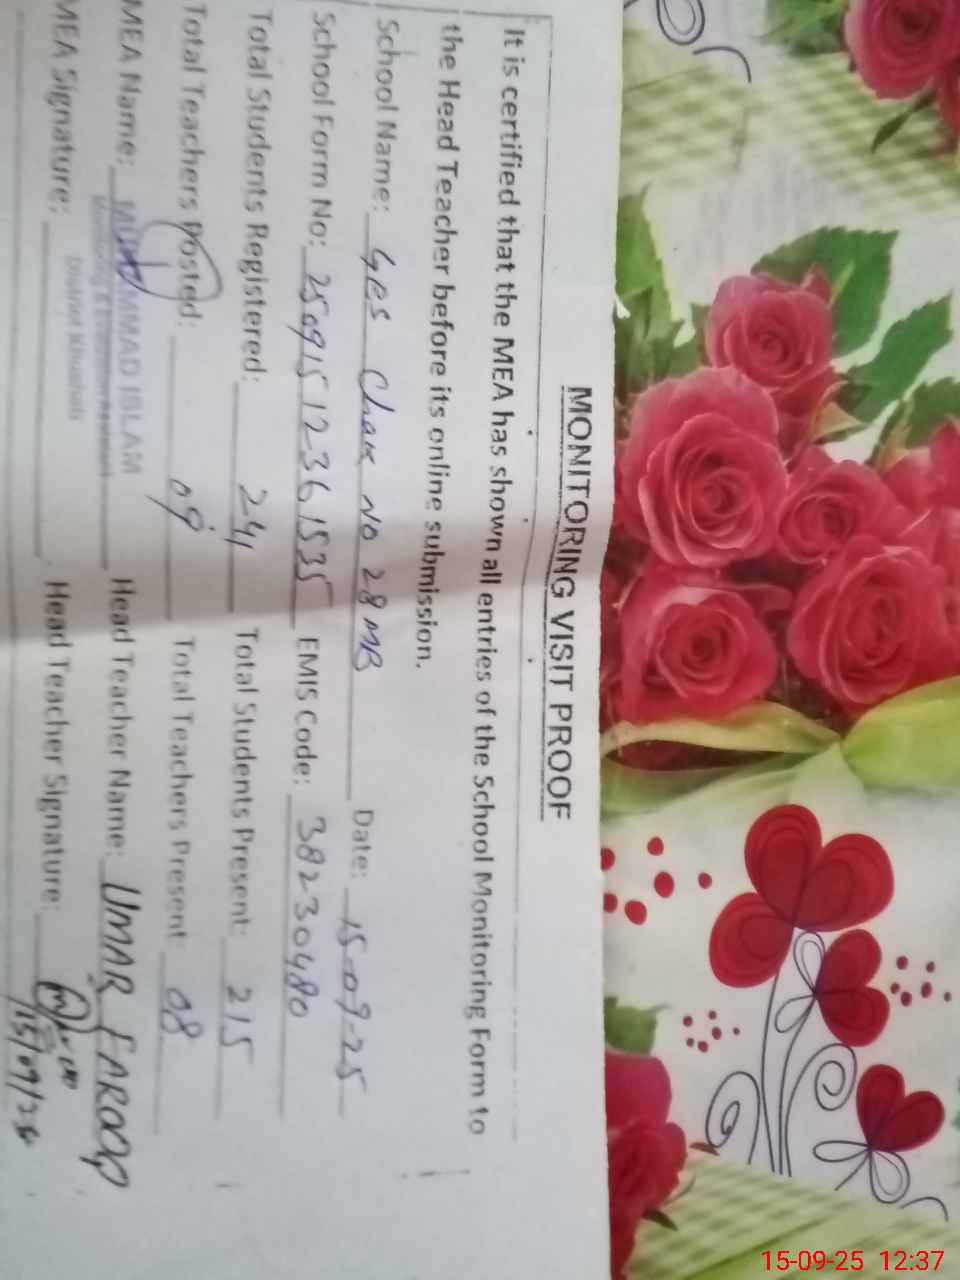 MONITORING VISIT PROOF
It is certified that the MEA has shown all entries of the School Monitoring Form to
the Head Teacher before its online submission.
School Name: GES Chak No 28 MB Date: 15-09-25
School Form No: 25091512361535 EMIS Code: 38230480
Total Students Registered: 241 Total Students Present: 215
Total Teachers Posted: 09 Total Teachers Present 08
MEA Name: MUHAMMAD ISLAM Head Teacher Name: UMAR FAROOQ
District Khushab
MEA Signature: Head Teacher Signature:
15/09/25
15-09-25 12:37